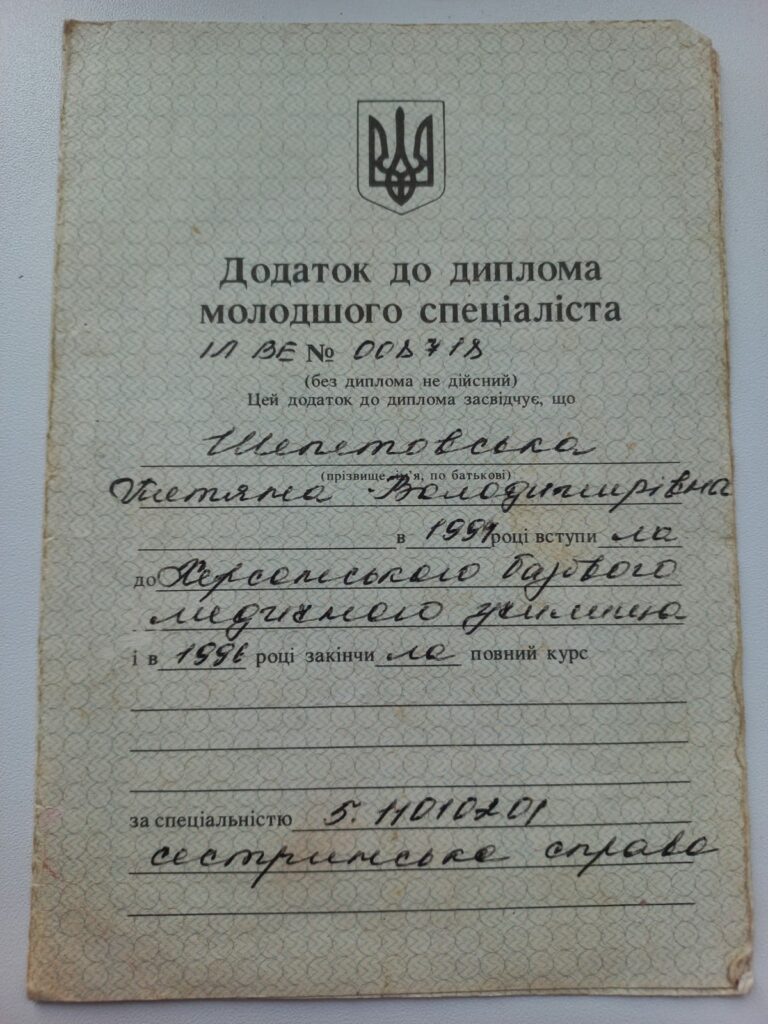 Додаток до диплома
молодшого спеціаліста
ІЛ ВЕ № 008718
(без диплома не дійсний)
Цей додаток до диплома засвідчує, що
Шепетовська
(прізвище, ім'я, по батькові)
Тетяна Володимирівна
в 1994 році вступи ла
до Херсонського базового
медичного училища
і в 1996 році закінчи ла повний курс
за спеціальністю 5.11010201
сестринська справа